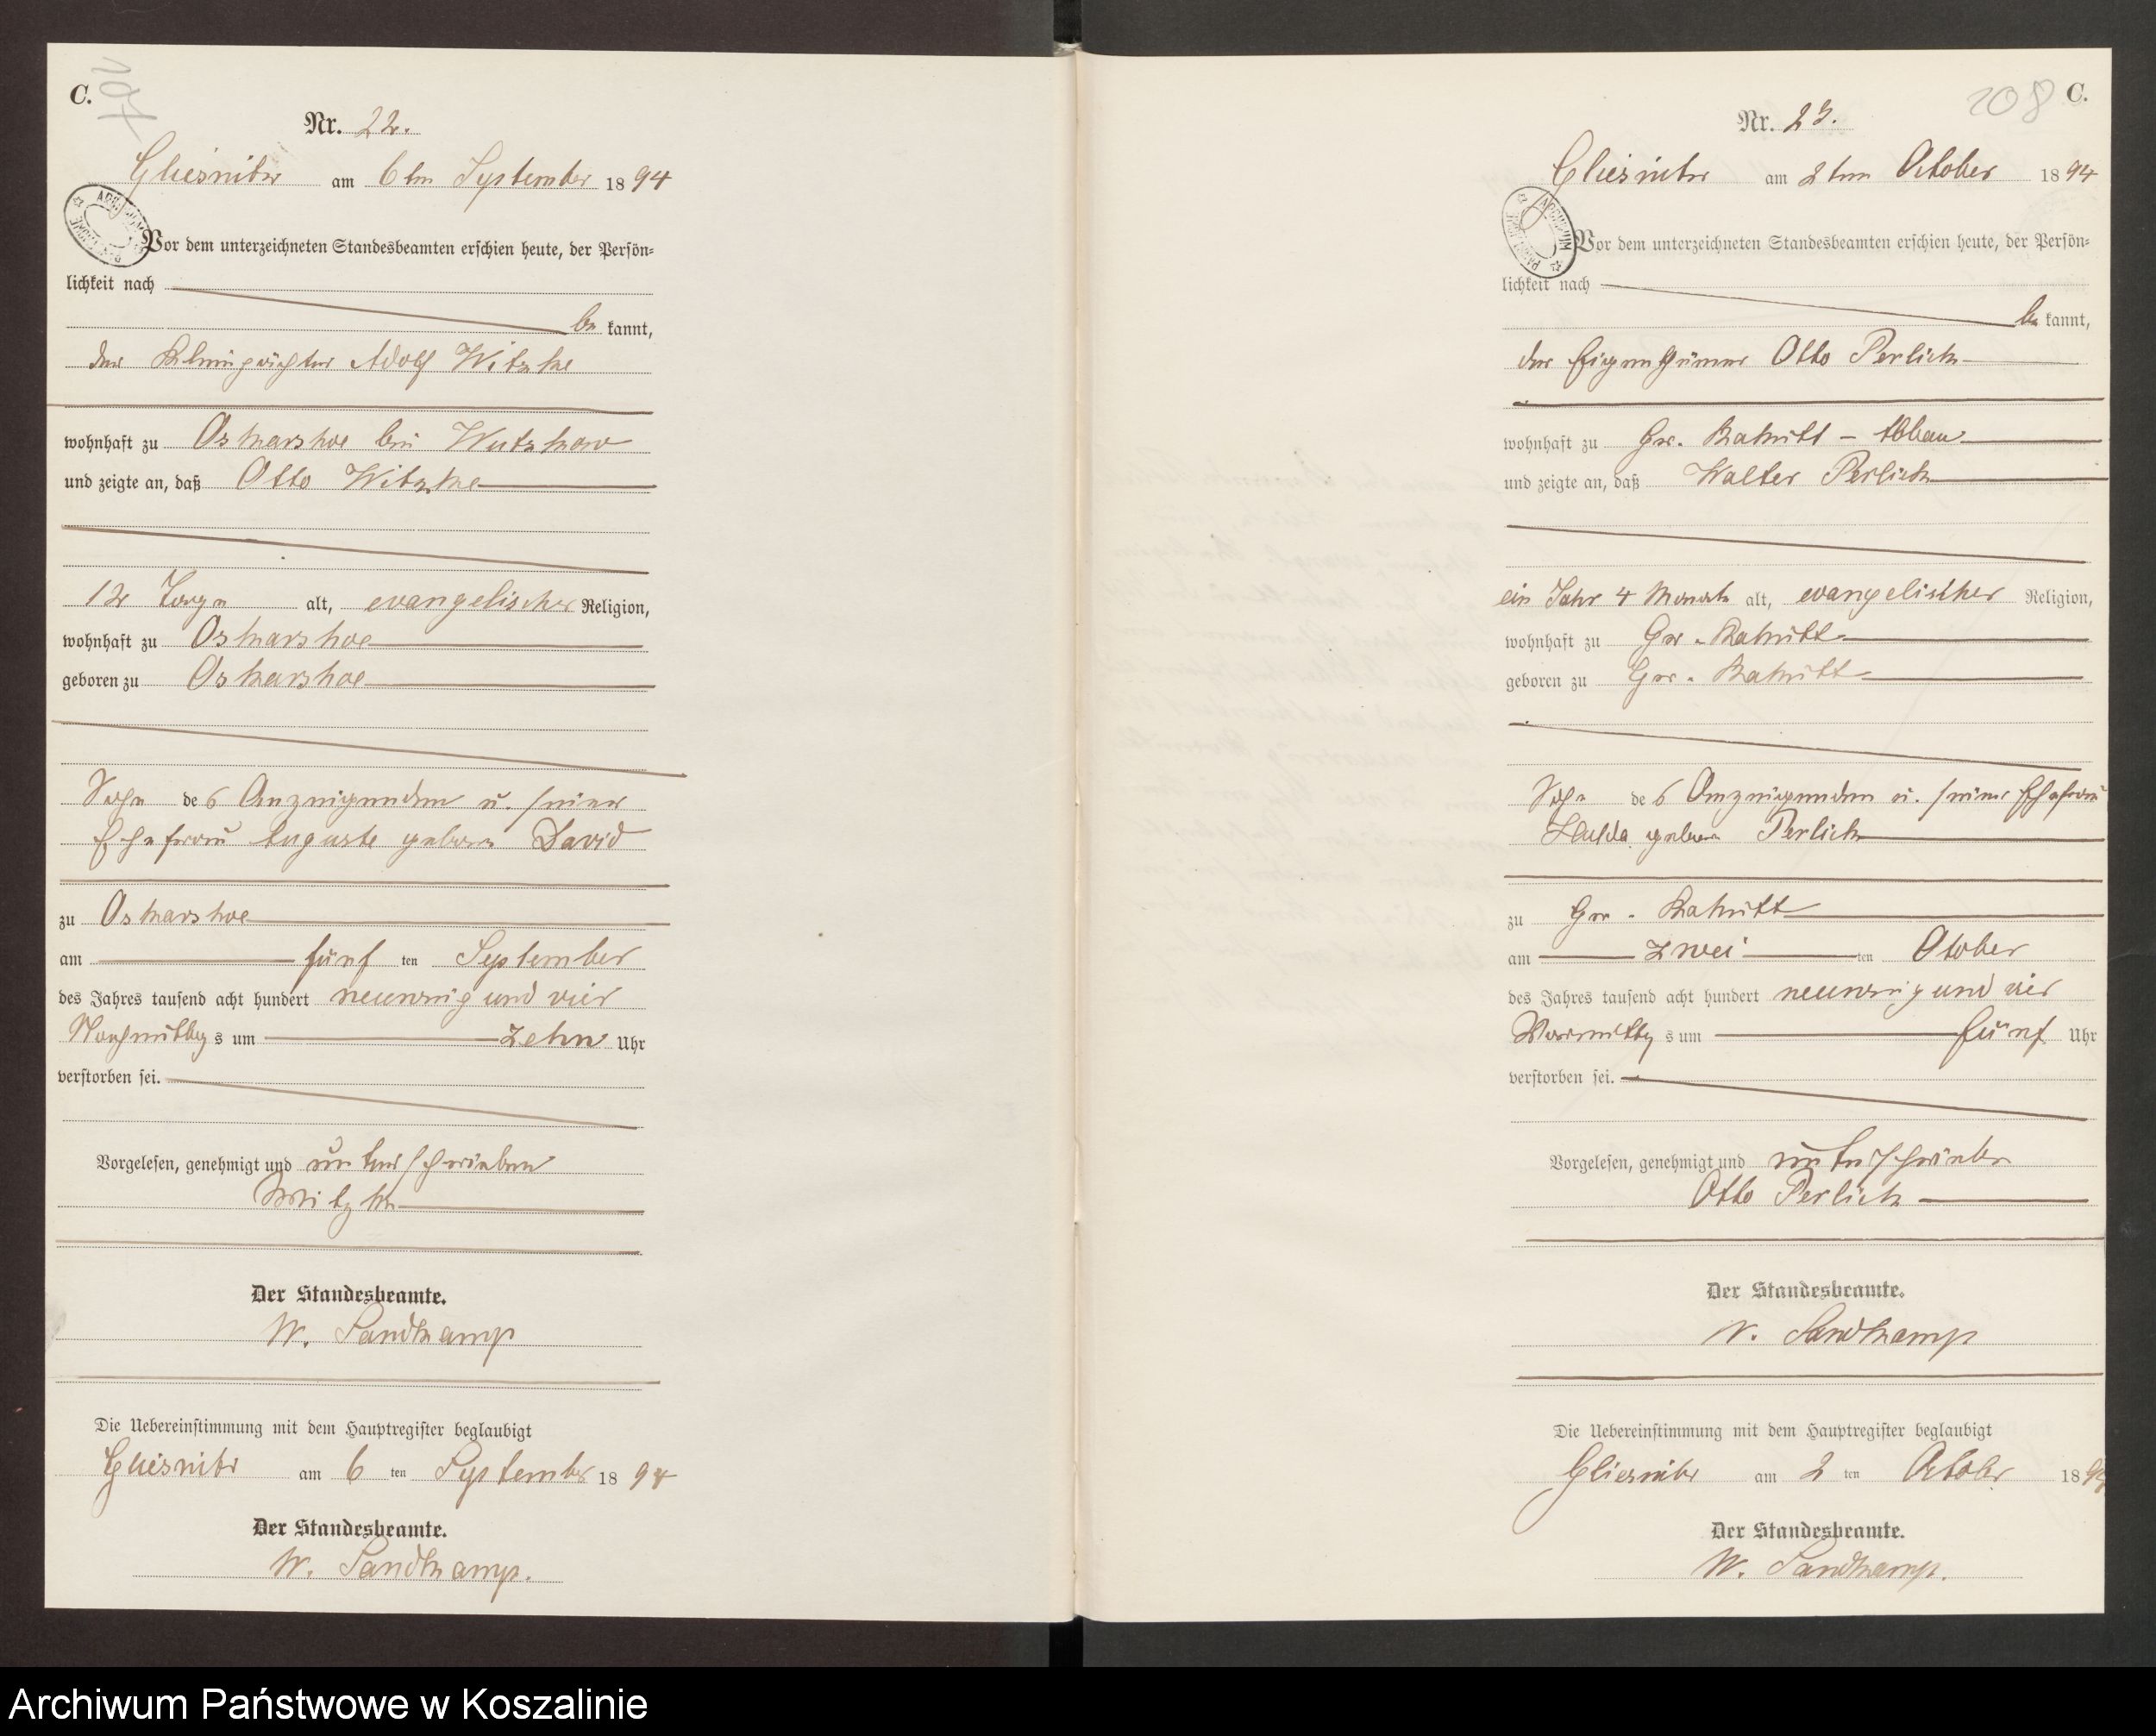 C.
107
Nr. 22.
Gliesnitz am 6ten September 1894
Vor dem unterzeichneten Standesbeamten erschien heute, der Persön-
lichkeit nach
be kannt,
der Kleinpächter Adolf Witzke
wohnhaft zu Oskarshoe bei Wutzkow
und zeigte an, daß Otto Witzke
12 Tage alt, evangelischer Religion,
wohnhaft zu Oskarshoe
geboren zu Oskarshoe
Sohn des Anzeigenden u. seiner
Ehefrau Auguste geborne David
zu Oskarshoe
am fünf ten September
des Jahres tausend acht hundert neunzig und vier
Nachmittags um zehn Uhr
verstorben sei.
Vorgelesen, genehmigt und unterschrieben
Witzke
Der Standesbeamte.
W. Sandkamp
Die Uebereinstimmung mit dem Hauptregister beglaubigt
Gliesnitz am 6 ten September 1894
Der Standesbeamte.
W. Sandkamp.
208 C.
Nr. 23.
Gliesnitz am 2ten October 1894
ARCHIWUM
Vor dem unterzeichneten Standesbeamten erschien heute, der Persön-
lichkeit nach
be kannt,
der Eigenthümer Otto Perlick
wohnhaft zu Gr. Rakitt - Abbau
und zeigte an, daß Walter Perlick
ein Jahr 4 Monate alt, evangelischer Religion,
wohnhaft zu Gr. Rakitt
geboren zu Gr. Rakitt
Sohn des Anzeigenden u. seiner Ehefrau
Hulda geborne Perlick
zu Gr. Rakitt
am zwei ten Otober
des Jahres tausend acht hundert neunzig und vier
Vormittags um fünf Uhr
verstorben sei.
Vorgelesen, genehmigt und unterschrieben
Otto Perlick
Der Standesbeamte.
W. Sandkamp
Die Uebereinstimmung mit dem Hauptregister beglaubigt
Gliesnitz am 2 ten October 1894
Der Standesbeamte.
W. Sandkamp.
Archiwum Państwowe w Koszalinie